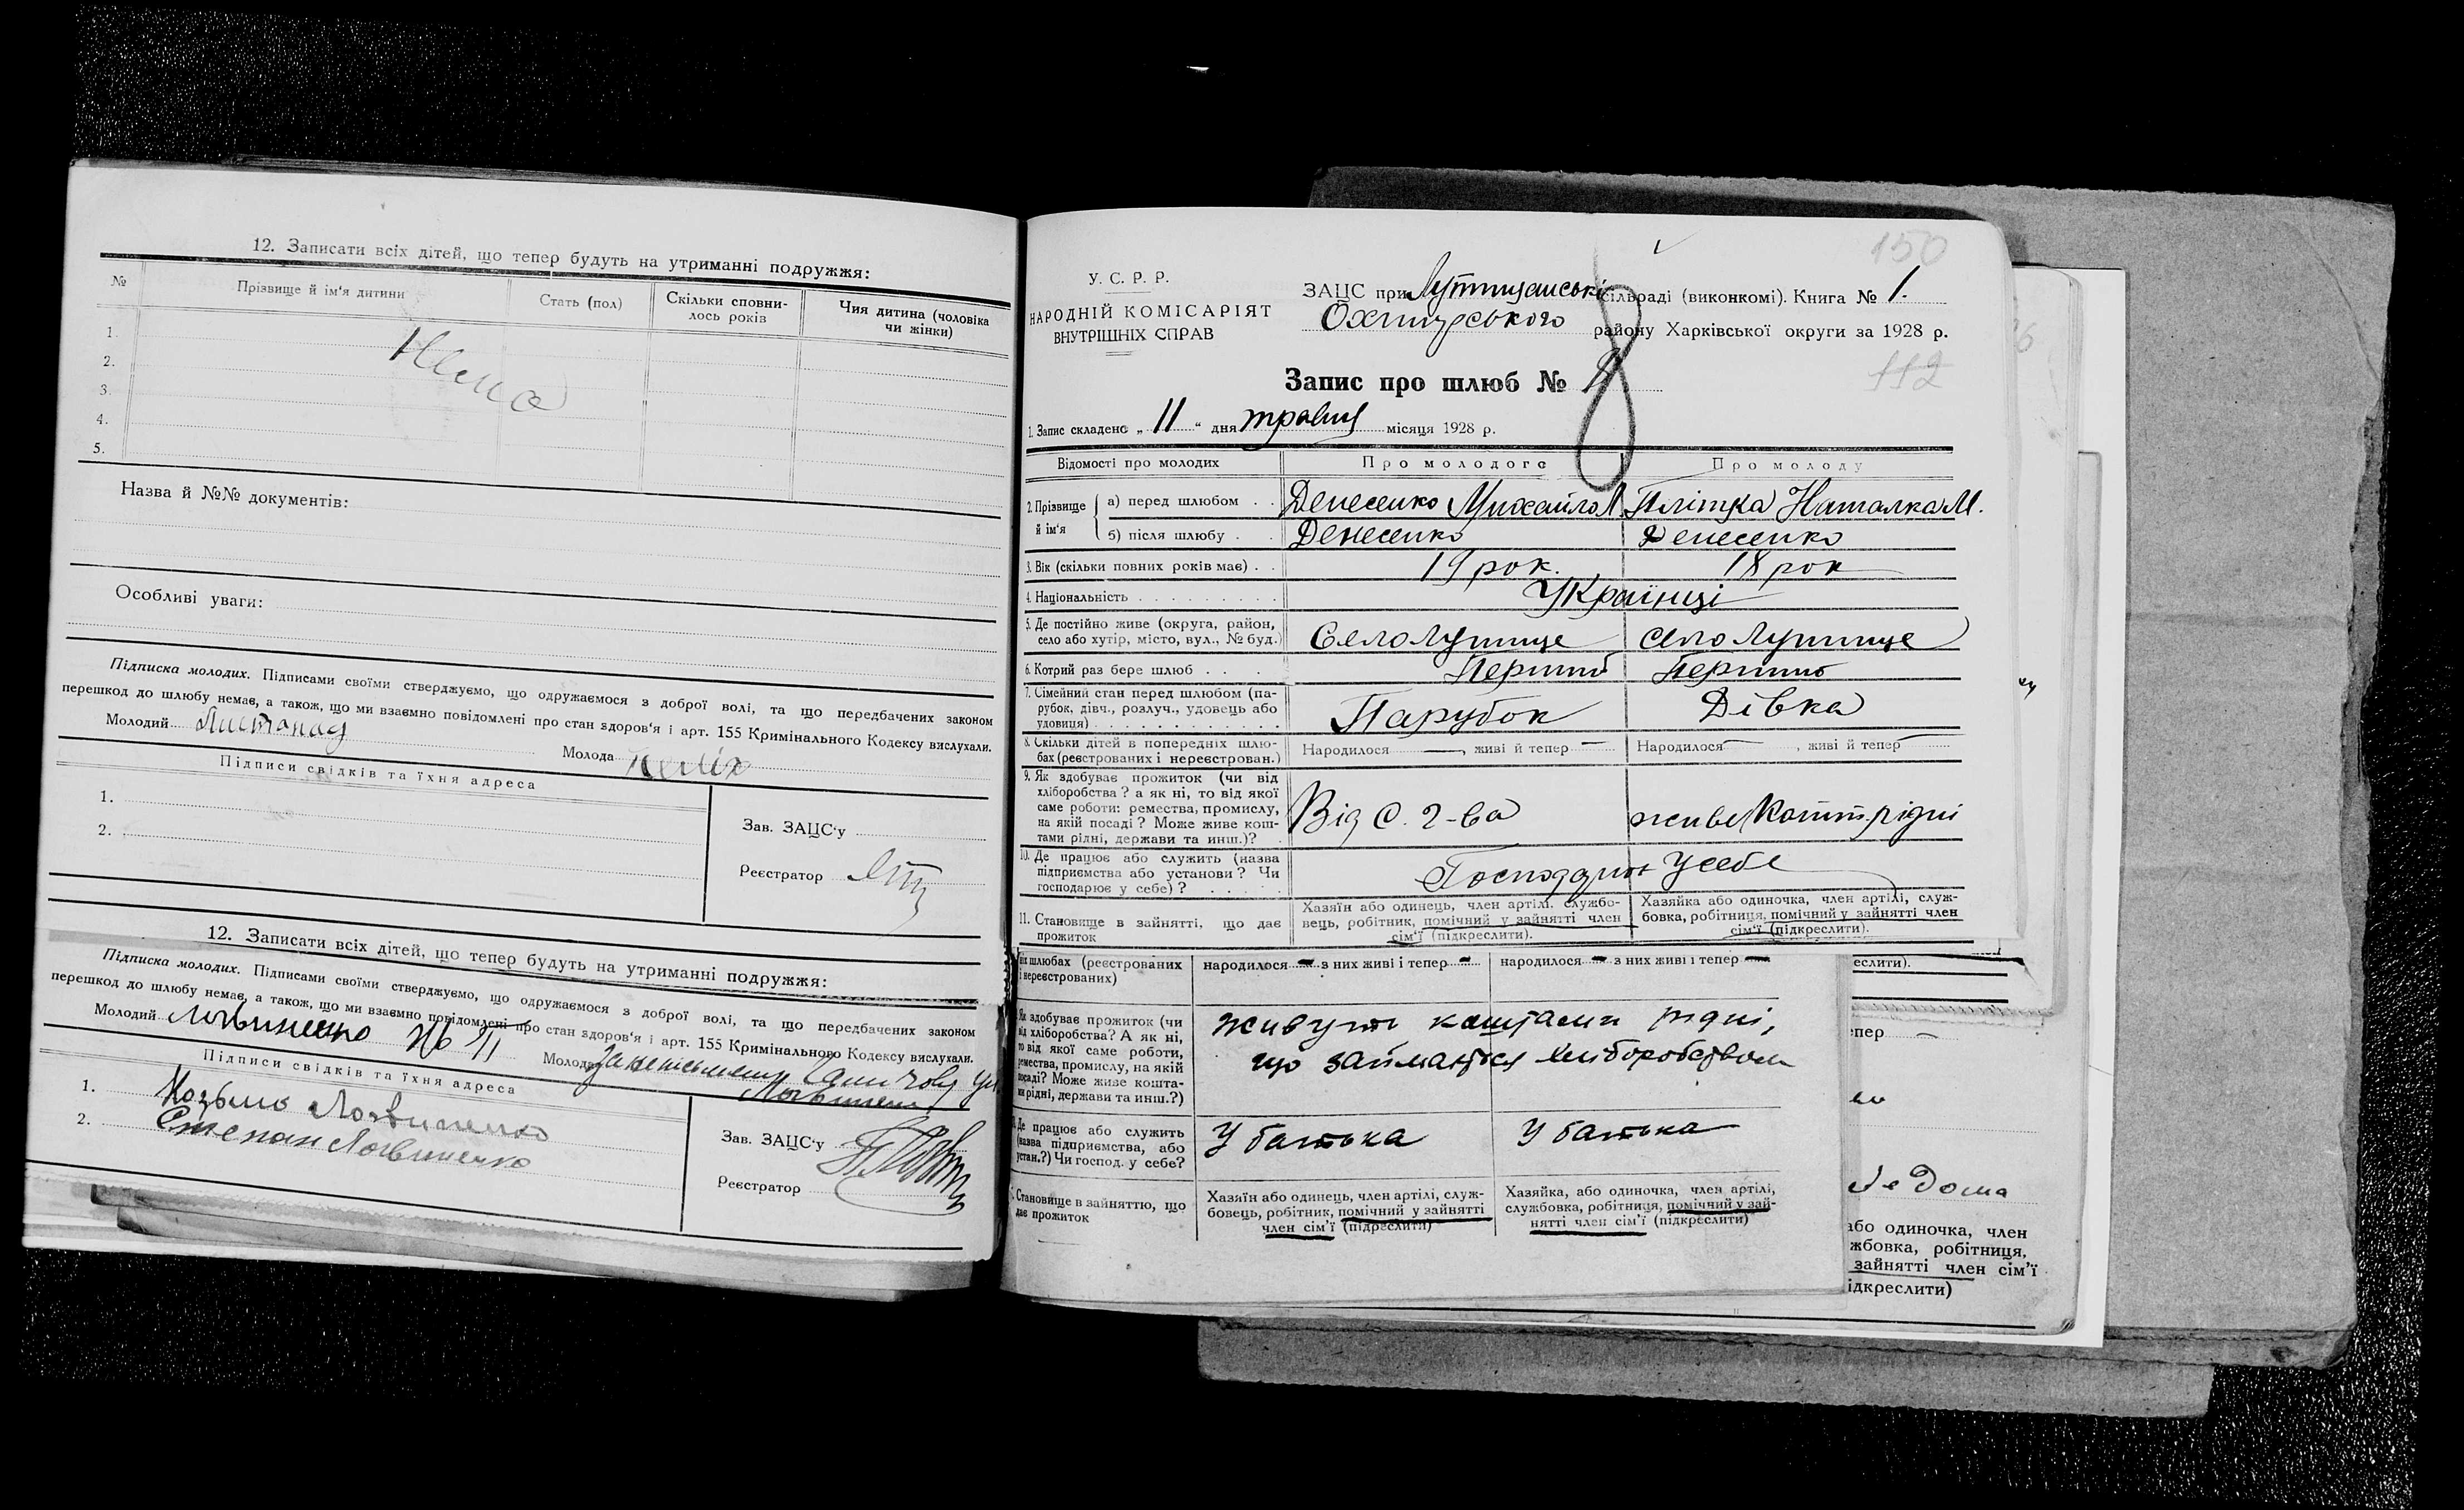 12. Записати всіх дітей, що тепер будуть на утриманні подружжя:
№
Прізвище й ім'я дитини
Стать (пол)
Скільки сповни-
лось років
Чия дитина (чоловіка
чи жінки)
1.
2.
3.
4.
5.
Нема
Назва й №№ документів:
Особливі уваги:
Підписка молодих. Підписами своїми стверджуємо, що одружаємося з доброї волі, та що передбачених законом
перешкод до шлюбу немає, а також, що ми взаємно повідомлені про стан здоров'я і арт. 155 Кримінального Кодексу вислухали.
Молодий Листопад
Молода
Підписи свідків та їхня адреса
1.
2.
Зав. ЗАЦС'у
Реєстратор
12. Записати всіх дітей, що тепер будуть на утриманні подружжя:
Підписка молодих. Підписами своїми стверджуємо, що одружаємося з доброї волі, та що передбачених законом
перешкод до шлюбу немає, а також, що ми взаємно повідомлені про стан здоров'я і арт. 155 Кримінального Кодексу вислухали.
Молодий Логвиненко
Молода
Підписи свідків та їхня адреса
1. Козьма Логвиненко
2. Степан Логвиненко
Зав. ЗАЦС'у
Реєстратор
150
У. С. Р. Р.
НАРОДНІЙ КОМІСАРІЯТ
ВНУТРІШНІХ СПРАВ
ЗАЦС при Лутищанські сільраді (виконкомі). Книга № 1.
Охтирського району Харківської округи за 1928 р.
112
Запис про шлюб №
8
1. Запис складено „11" дня травня місяця 1928 р.
Відомості про молодих
Про молодого
Про молоду
2. Прізвище й ім'я
а) перед шлюбом . .
Денесенко Михайло
Плітка Наталка М.
б) після шлюбу .
Денесенко
Денесенко
3. Вік (скільки повних років має) . .
19 рок.
18 рок
4. Національність
Українці
5. Де постійно живе (округа, район,
село або хутір, місто, вул., № буд.)
Село Лутище
село Лутище
6. Котрий раз бере шлюб . .
Перший
Перший
7. Сімейний стан перед шлюбом (па-
рубок, дівч., розлуч., удовець або
удовиця)
Парубок
Дівка
8. Скільки дітей в попередніх шлю-
бах (реєстрованих і нереєстрован.)
Народилося —, живі й тепер —
Народилося —, живі й тепер —
9. Як здобуває прожиток (чи від
хліборобства? а як ні, то від якої
саме роботи: ремества, промислу,
на якій посаді? Може живе кош-
тами рідні, держави та инш.)?
Від С. г-ва
живе Кошт. рідні
10. Де працює або служить (назва
підприємства або установи? Чи
господарює у себе)?
У себе
11. Становище в зайнятті, що дає
прожиток
Хазяїн або одинець, член артілі, службо-
вець, робітник, помічний у зайнятті член
сім'ї (підкреслити).
Хазяйка або одиночка, член артілі, служ-
бовка, робітниця, помічний у зайнятті член
сім'ї (підкреслити).
еслити).
шлюбах (реєстрованих
і нереєстрованих)
народилося — з них живі і тепер —
народилося — з них живі і тепер —
Як здобуває прожиток (чи
від хліборобства? А як ні,
то від якої саме роботи,
ремества, промислу, на якій
посаді? Може живе кошта-
ми рідні, держави та инш.?)
живуть коштами рідні,
що займаться хліборобством
тепер —
Де працює або служить
(назва підприємства, або
устан.?) Чи господ. у себе?
У батька
У батька
дома
Становище в зайняттю, що
дає прожиток
Хазяїн або одинець, член артілі, служ-
бовець, робітник, помічний у зайнятті
член сім'ї (підкреслити)
Хазяйка, або одиночка, член артілі,
службовка, робітниця, помічний у зай-
нятті член сім'ї (підкреслити)
або одиночка, член
жбовка, робітниця,
зайнятті член сім'ї
ідкреслити)